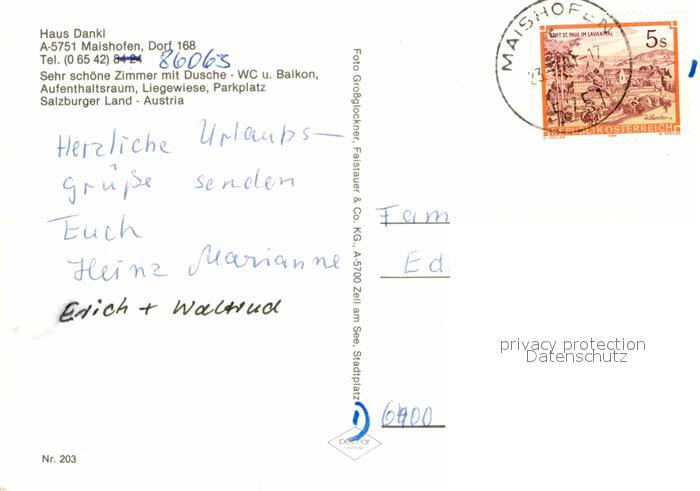 Haus Dankl
A-5751 Maishofen, Dorf 168
Tel. (0 65 42) 84 24 86063
Sehr schöne Zimmer mit Dusche - WC u. Balkon,
Aufenthaltsraum, Liegewiese, Parkplatz
Salzburger Land - Austria
Herzliche Urlaubs-
grüße senden
Euch
Heinz Marianne
Erich + Waltrud
Nr. 203
Foto Großglockner, Faistauer & Co. KG., A-5700 Zell am See, Stadtplatz
MAISHOFEN
5751
STIFT ST. PAUL IM LAVANTTAL
5 S
REPUBLIK ÖSTERREICH
Fam
Ed
privacy protection
Datenschutz
1)
6400